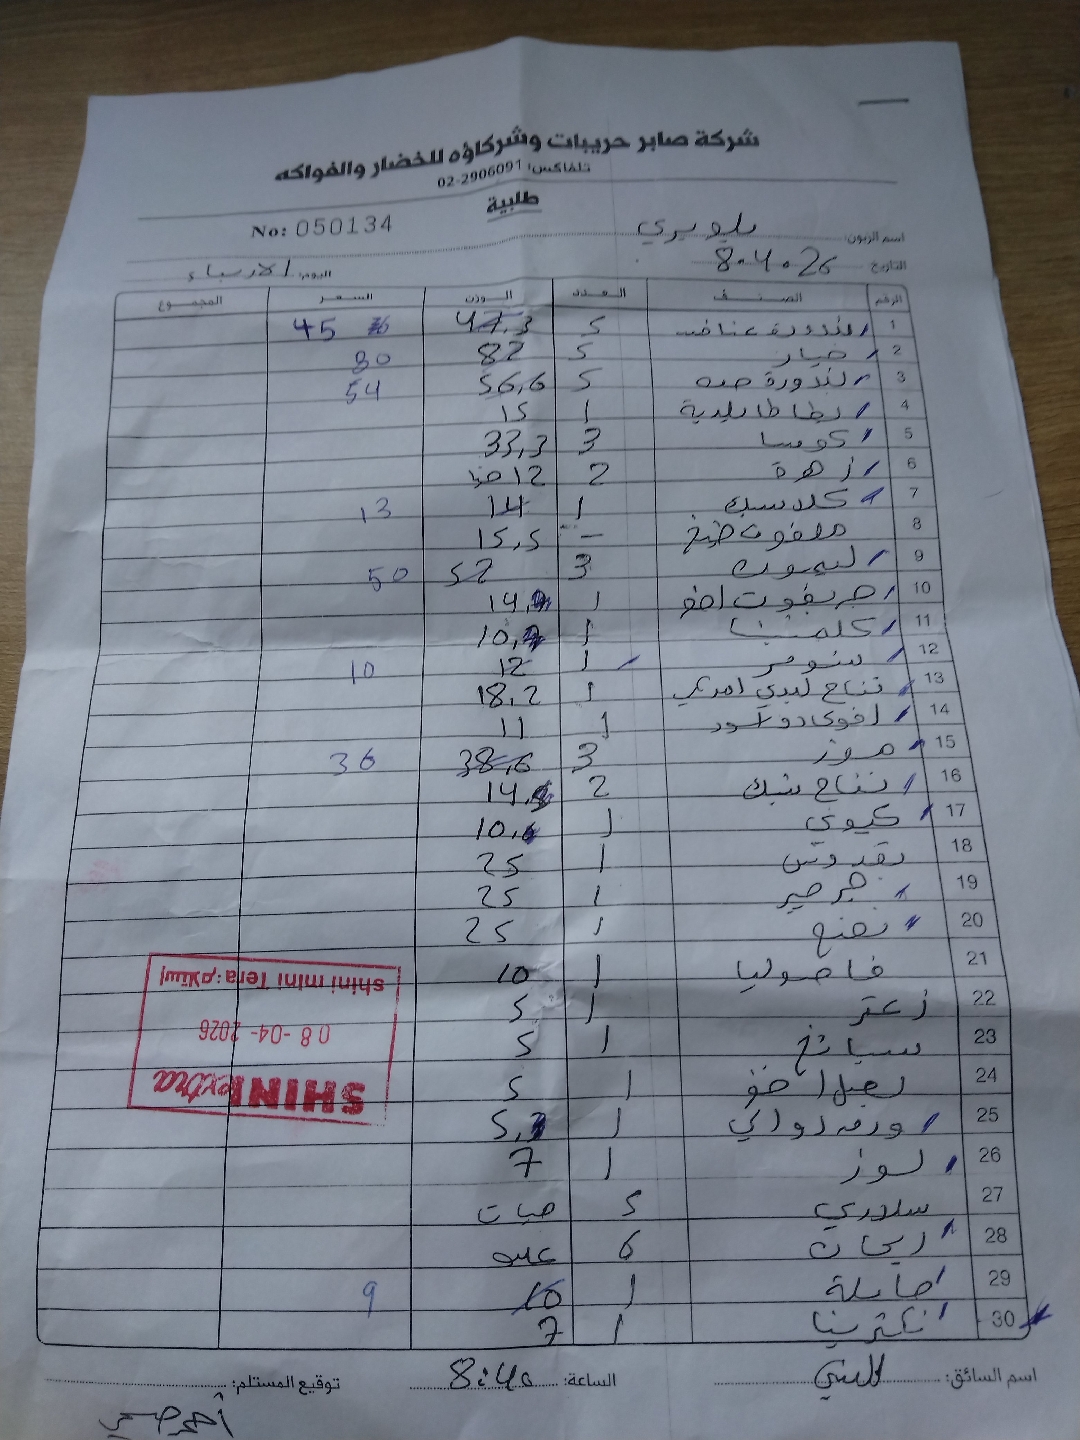 شركة صابر حريبات وشركاؤه للخضار والفواكه
تلفاكس: 02-2906091
طلبية
No: 050134
اسم الزبون:
التاريخ 8.4.26 اليوم: الاربعاء
الرقم الصنف العدد الوزن السعر المجموع
1 بندورة عناقيد 5 47,3 45
2 خيار 5 82 80
3 بندورة حبه 5 56,6 54
4 بطاطا بلدية 1 15
5 كوسا 3 33,3
6 زهرة 2 12 حبة
7 1 14 13
8 ملفوف طبخ - 15,5
9 ليمون 3 52 50
10 جريفوت احمر 1 14
11 كلمنتينا 1 10
12 1 12 10
13 تفاح ليدي امريكي 1 18,2
14 افوكادو اسود 1 11
15 موز 3 38,6 36
16 تفاح 2 14
17 كيوي 1 10
18 بقدونس 1 25
19 جرجير 1 25
20 نعنع 1 25
21 فاصوليا 1 10
22 زعتر 1 5
23 سبانخ 1 5
24 بصل اخضر 1 5
25 ورق دوالي 1 5
26 لوز 1 7
27 سلاري 5 حبات
28 ريحان 6 علبه
29 1 10 9
30 نكترينا 1 7
shini mini Tera إستلام:
08-04-2026
SHINI extra
اسم السائق: الساعة: 8:40 توقيع المستلم: